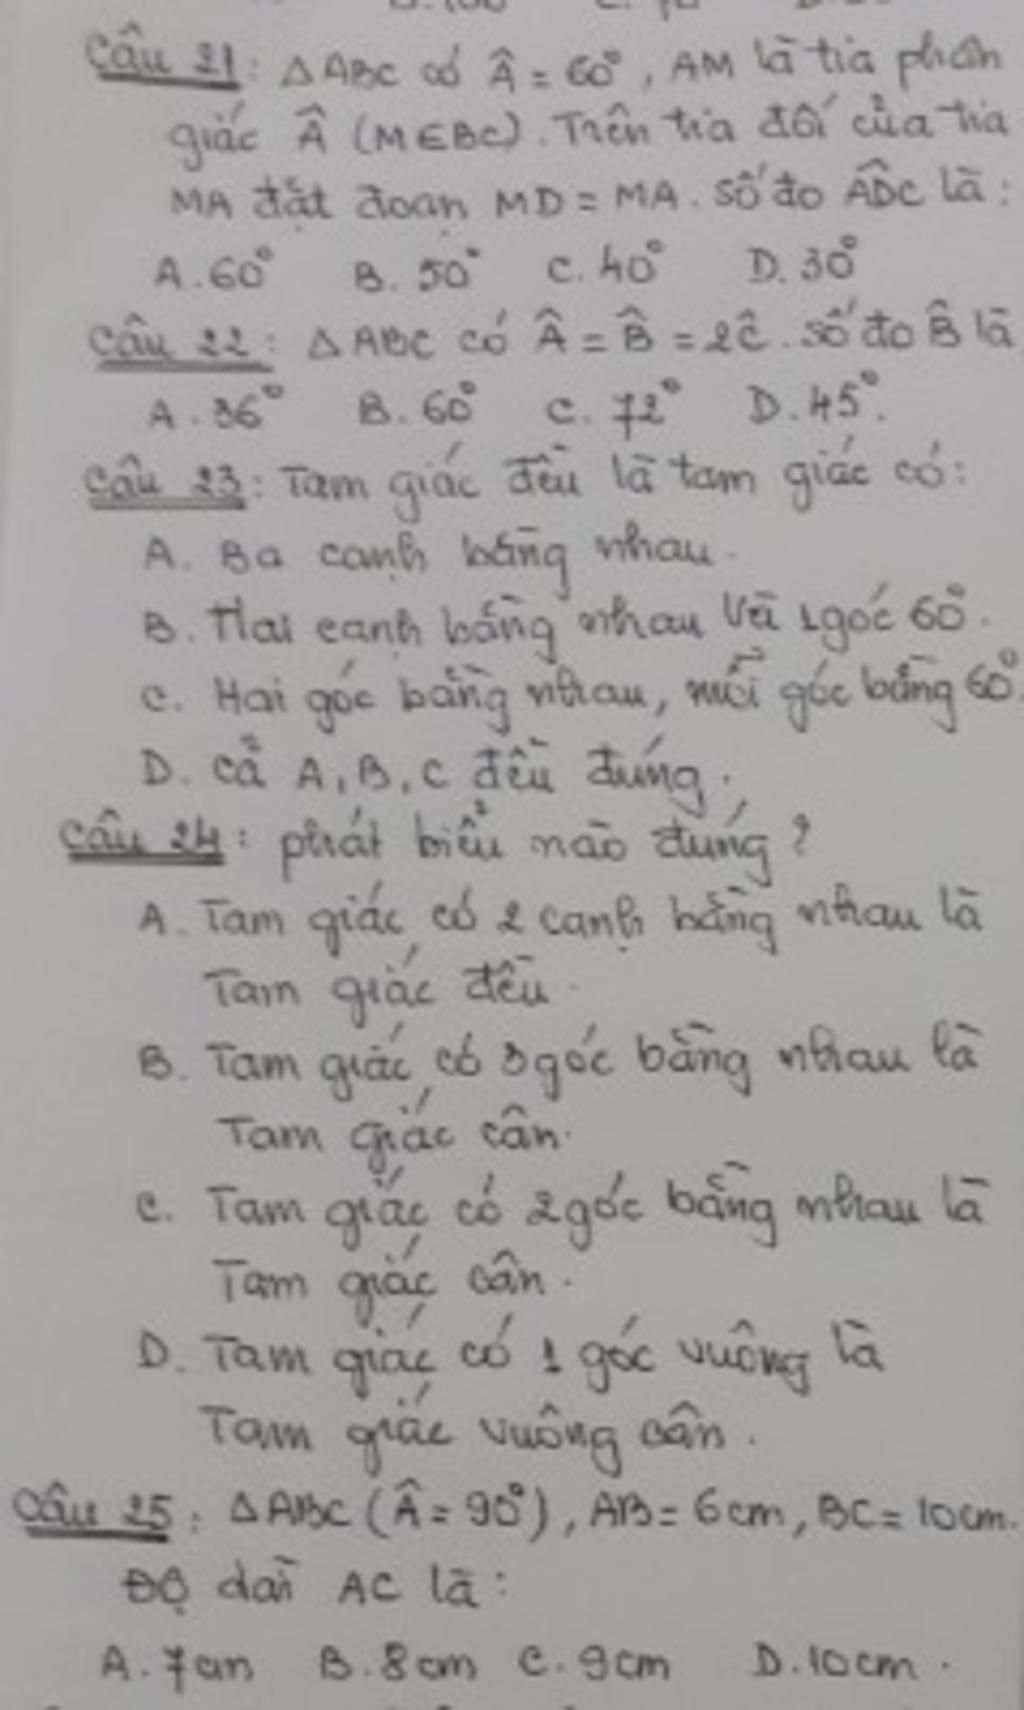 Câu 21: ΔABC có Â = 60°, AM là tia phân
giác Â (M∈BC). Trên tia đối của tia
MA đặt đoạn MD = MA. Số đo ADC là:
A. 60° B. 50° C. 40° D. 30°
Câu 22: ΔABC có Â = B̂ = 2Ĉ. Số đo B̂ là
A. 36° B. 60° C. 72° D. 45°.
Câu 23: Tam giác đều là tam giác có:
A. Ba cạnh bằng nhau.
B. Hai cạnh bằng nhau và 1 góc 60°.
C. Hai góc bằng nhau, mỗi góc bằng 60°.
D. Cả A, B, C đều đúng.
Câu 24: phát biểu nào đúng?
A. Tam giác có 2 cạnh bằng nhau là
Tam giác đều.
B. Tam giác có 3 góc bằng nhau là
Tam giác cân.
C. Tam giác có 2 góc bằng nhau là
Tam giác cân.
D. Tam giác có 1 góc vuông là
Tam giác vuông cân.
Câu 25: ΔABC (Â = 90°), AB = 6cm, BC = 10cm.
Độ dài AC là:
A. 7cm B. 8cm C. 9cm D. 10cm.